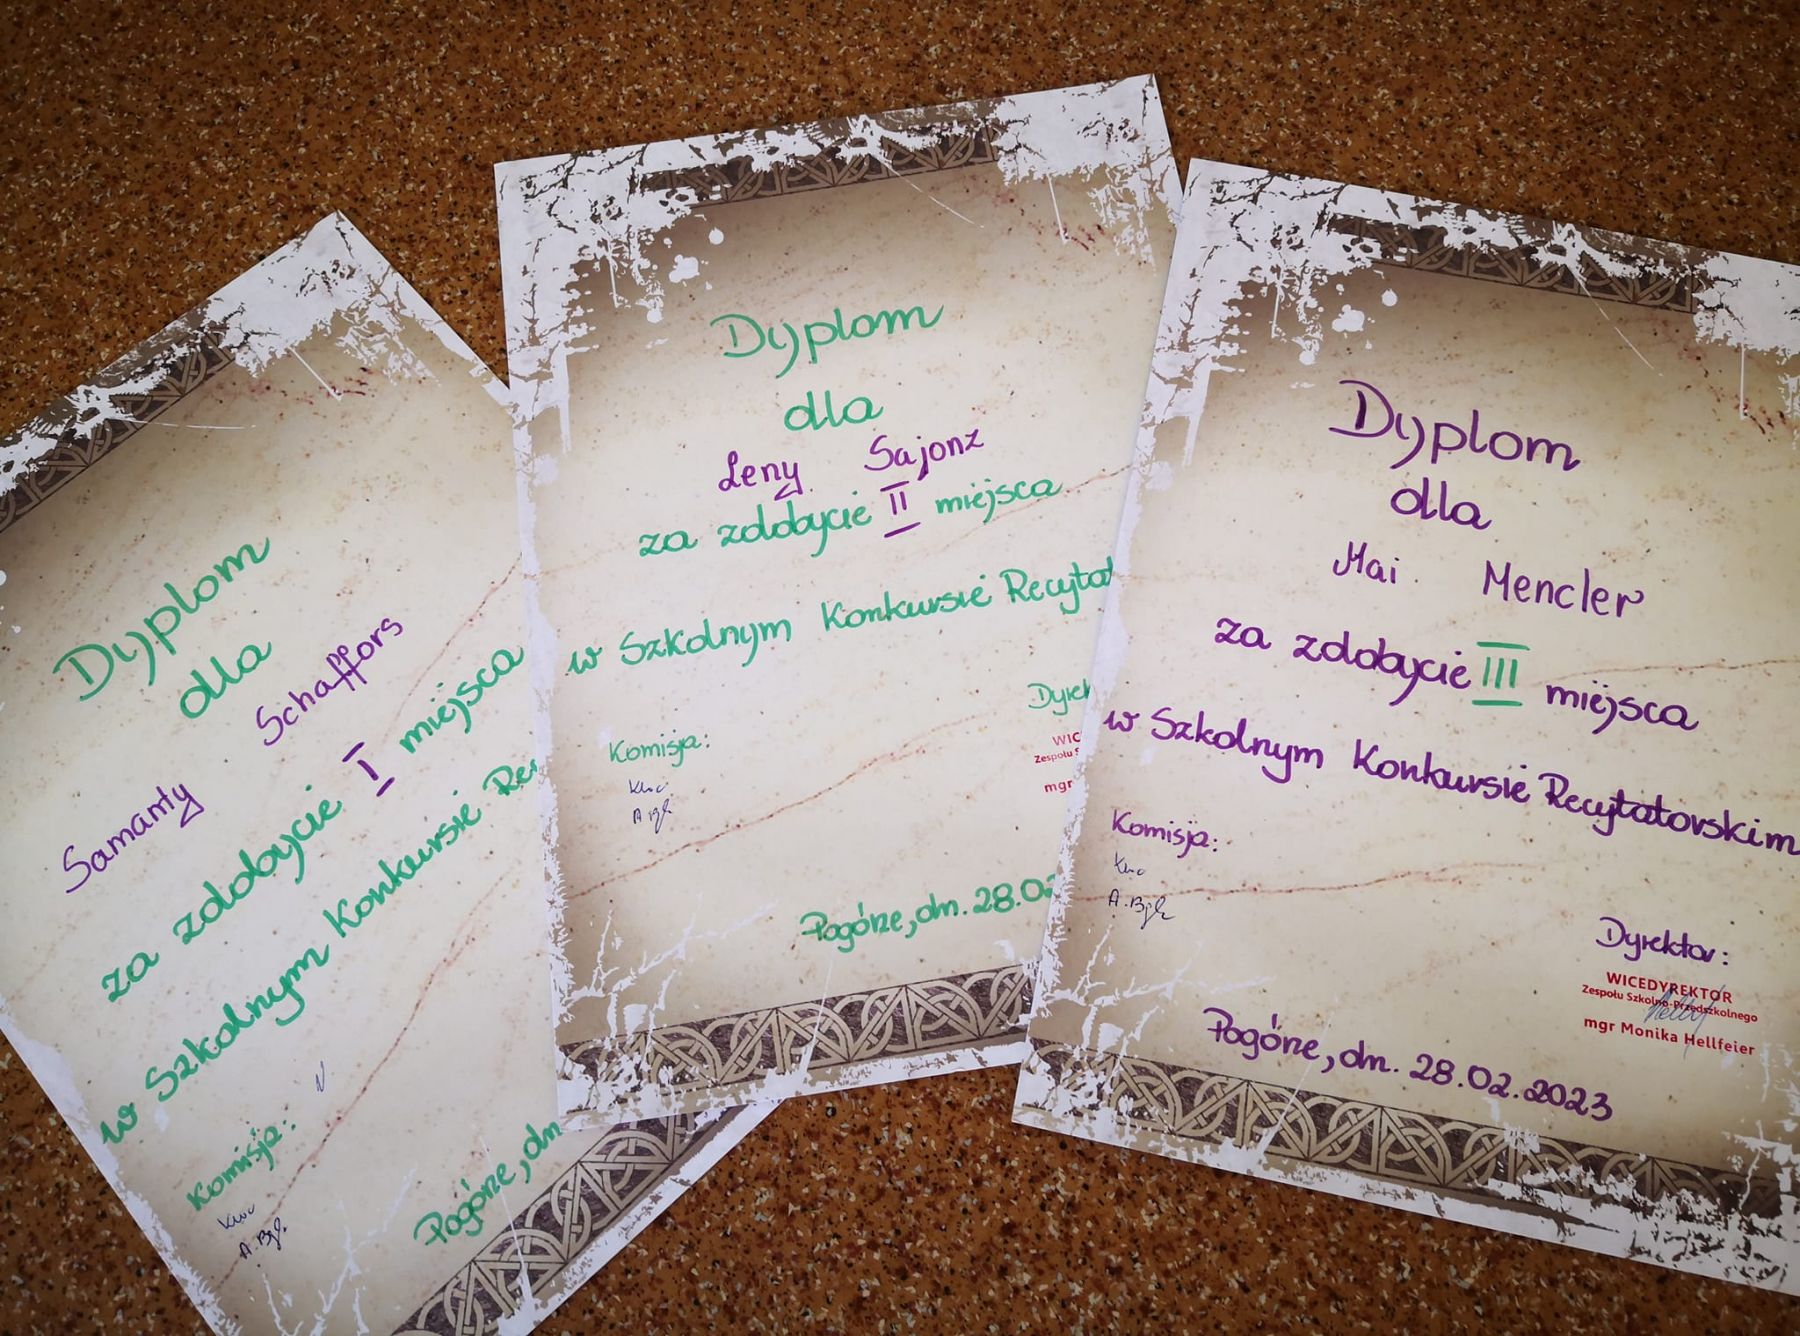 Dyplom
dla
Samanty Schaffors
za zdobycie I miejsca
w Szkolnym Konkursie Rec
Komisja:
Pogórze, dn
Dyplom
dla
Leny Sajonz
za zdobycie II miejsca
w Szkolnym Konkursie Recytat
Dyrek
Komisja:
WIC
Zespołu S
mgr
Pogórze, dn. 28.02
Dyplom
dla
Mai Mencler
za zdobycie III miejsca
w Szkolnym Konkursie Recytatorskim
Komisja:
Dyrektor:
WICEDYREKTOR
Zespołu Szkolno-Przedszkolnego
mgr Monika Hellfeier
Pogórze, dn. 28.02.2023